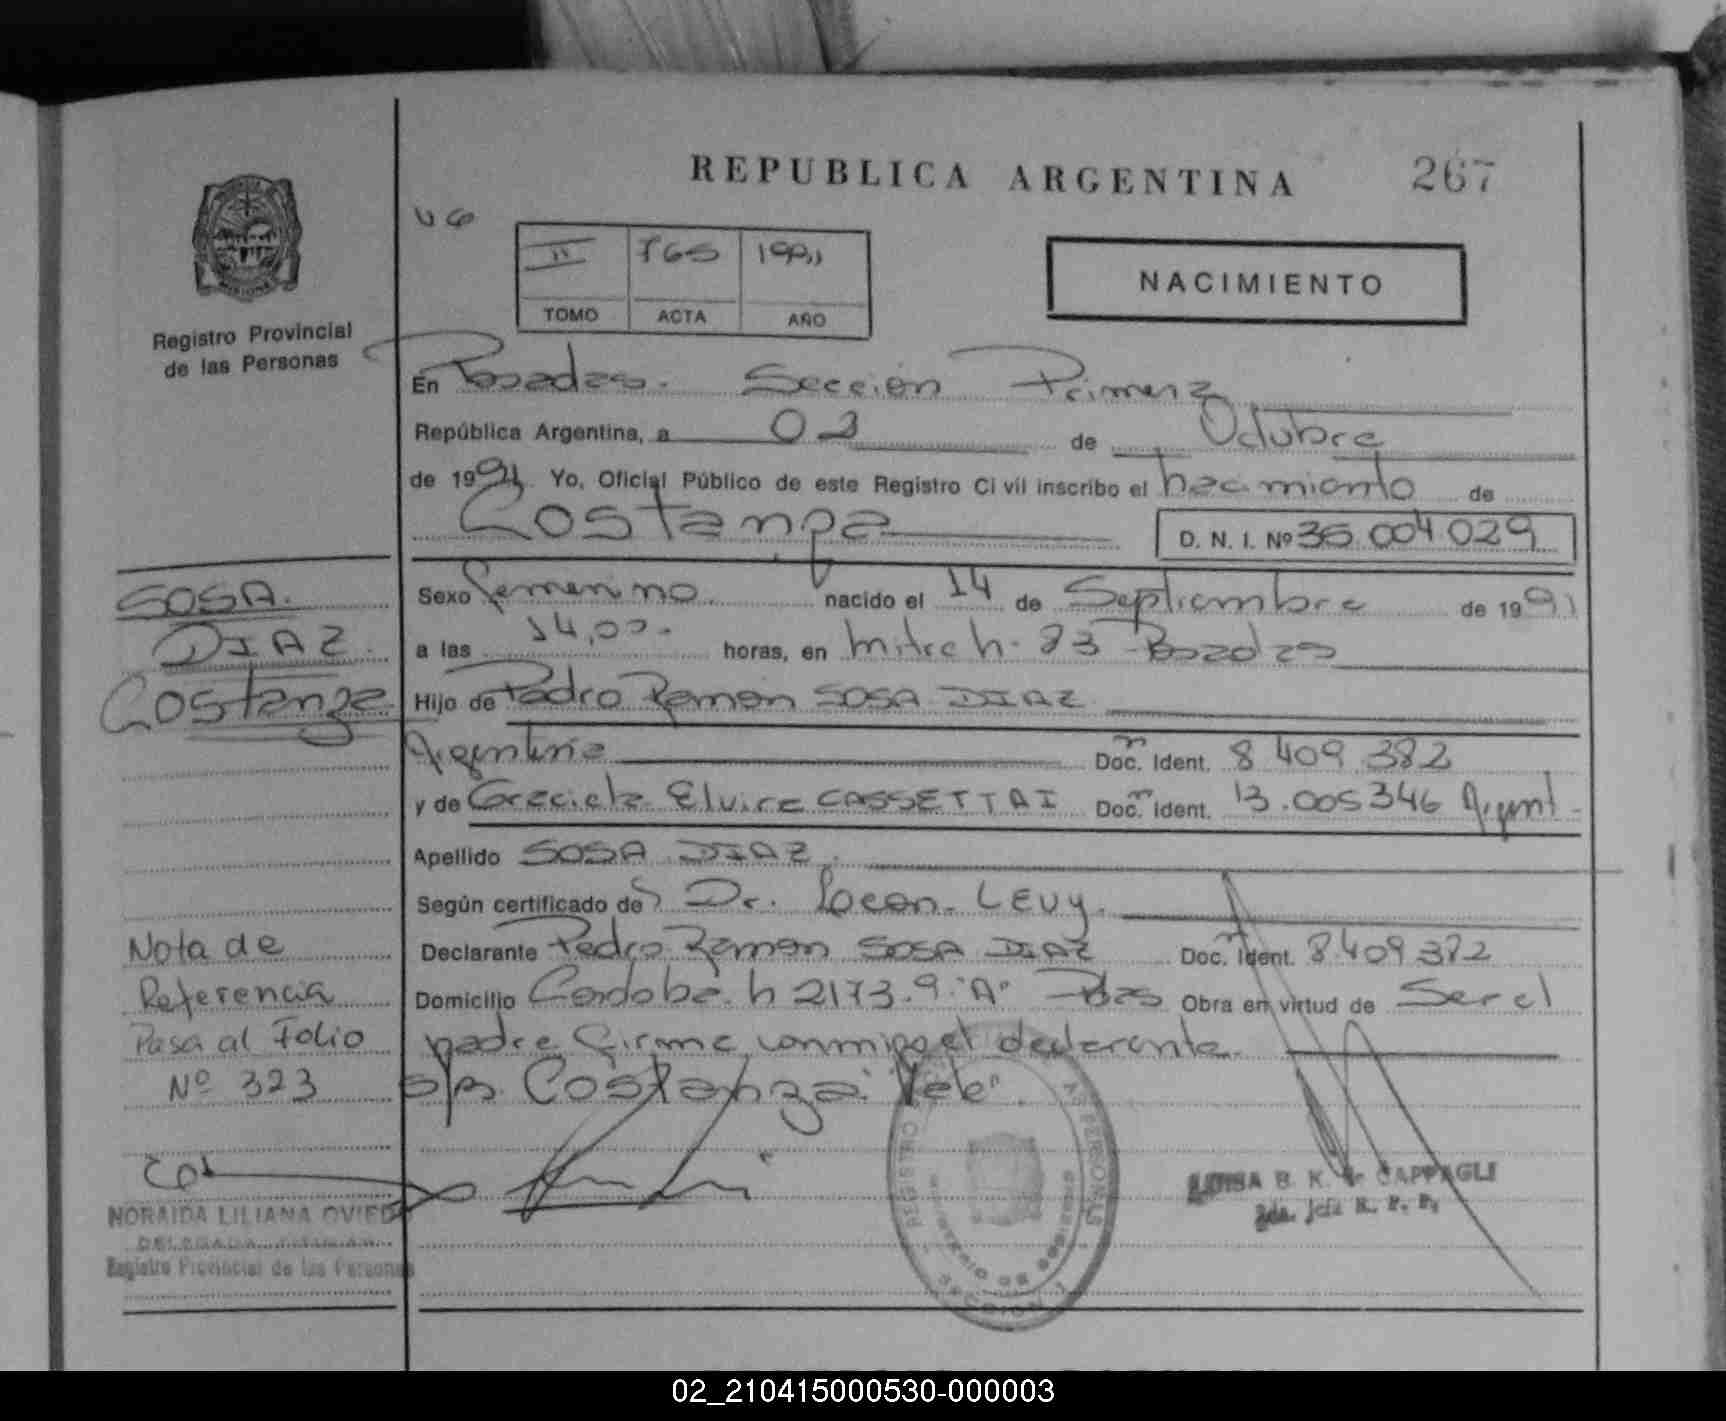 REPUBLICA ARGENTINA
267
II 765 1991
TOMO ACTA AÑO
NACIMIENTO
Registro Provincial
de las Personas
En Posadas. Sección Primera
República Argentina, a 03 de Octubre
de 1991. Yo, Oficial Público de este Registro Civil inscribo el nacimiento de
Costanza
D. N. I. Nº 36.004.029
SOSA
DIAZ
Costanza
Sexo femenino nacido el 14 de Septiembre de 1991
a las 14,00. horas, en Mitre h. 83 Posadas
Hijo de Pedro Ramon SOSA DIAZ
Argentina Doc. Ident. 8 409 382
y de Graciela Elvira CASSETTAI Doc. Ident. 13.005346 Argent.
Apellido SOSA DIAZ.
Según certificado de Dr. LEVY.
Declarante Pedro Ramon SOSA DIAZ Doc. Ident. 8.409382
Domicilio Cordoba h 2173. 9 "A" Pdas Obra en virtud de Ser el
padre firma conmigo el declarante.
s/r. Costanza: Vale.
Nota de
Referencia
Pasa al Folio
Nº 323
NORAIDA LILIANA OVIEDO
DELEGADA TITULAR
Registro Provincial de las Personas
LUISA B. K. de CAPPAGLI
2da. Jefe R. P. P.
02_210415000530-000003